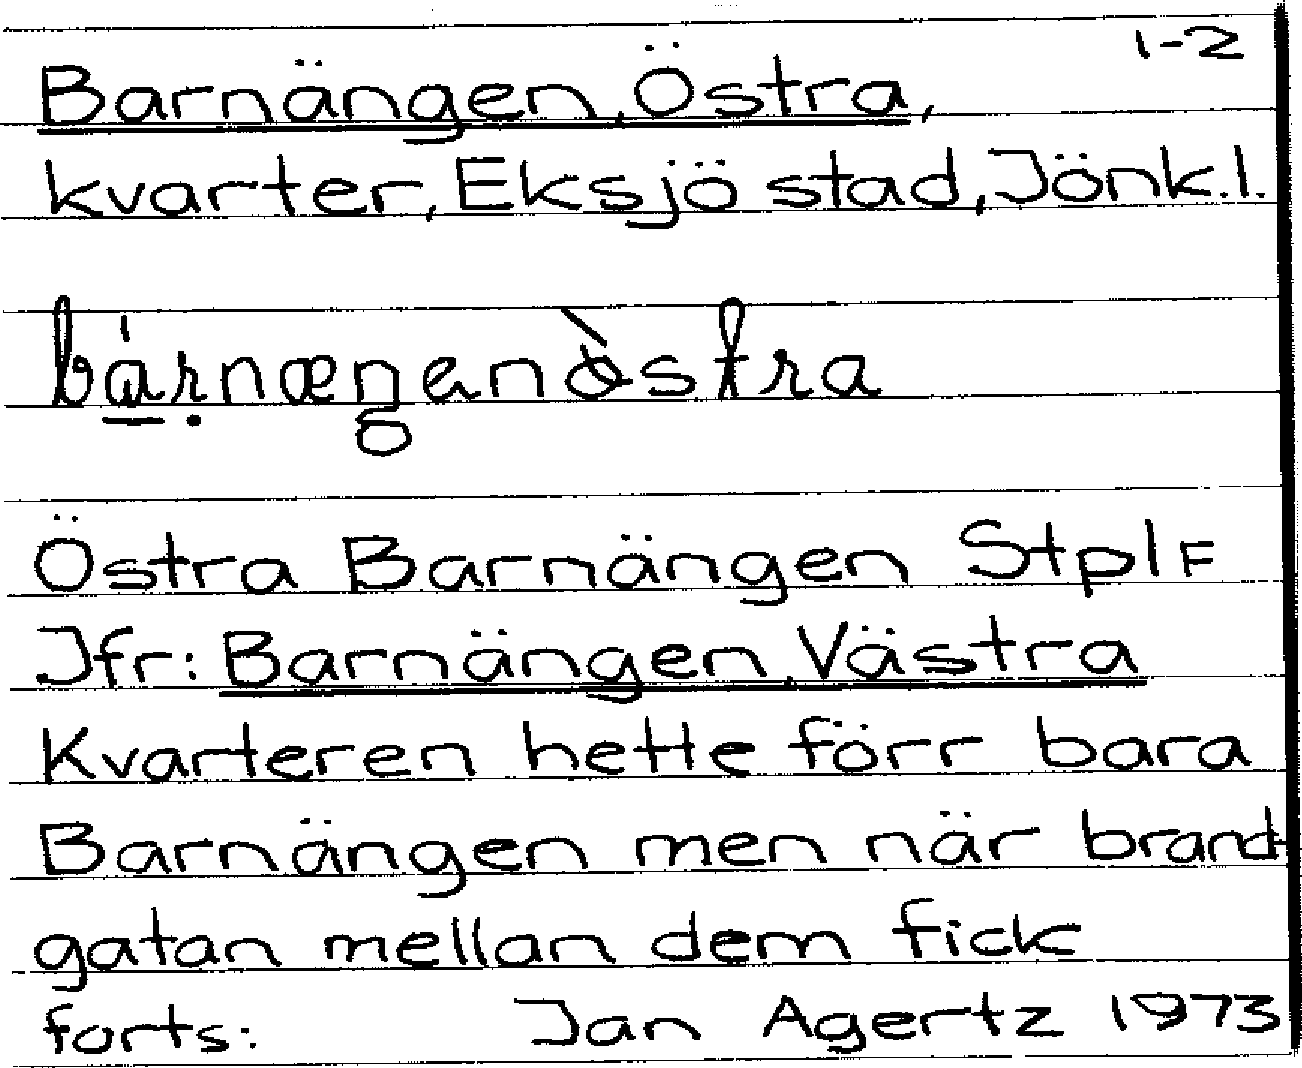 1-2
Barnängen, Östra,
kvarter, Eksjö stad, Jönk.l.
bárṇæŋenòstra
Östra Barnängen StplF
Jfr: Barnängen, Västra
Kvarteren hette förr bara
Barnängen men när brand-
gatan mellan dem fick
forts: Jan Agertz 1973